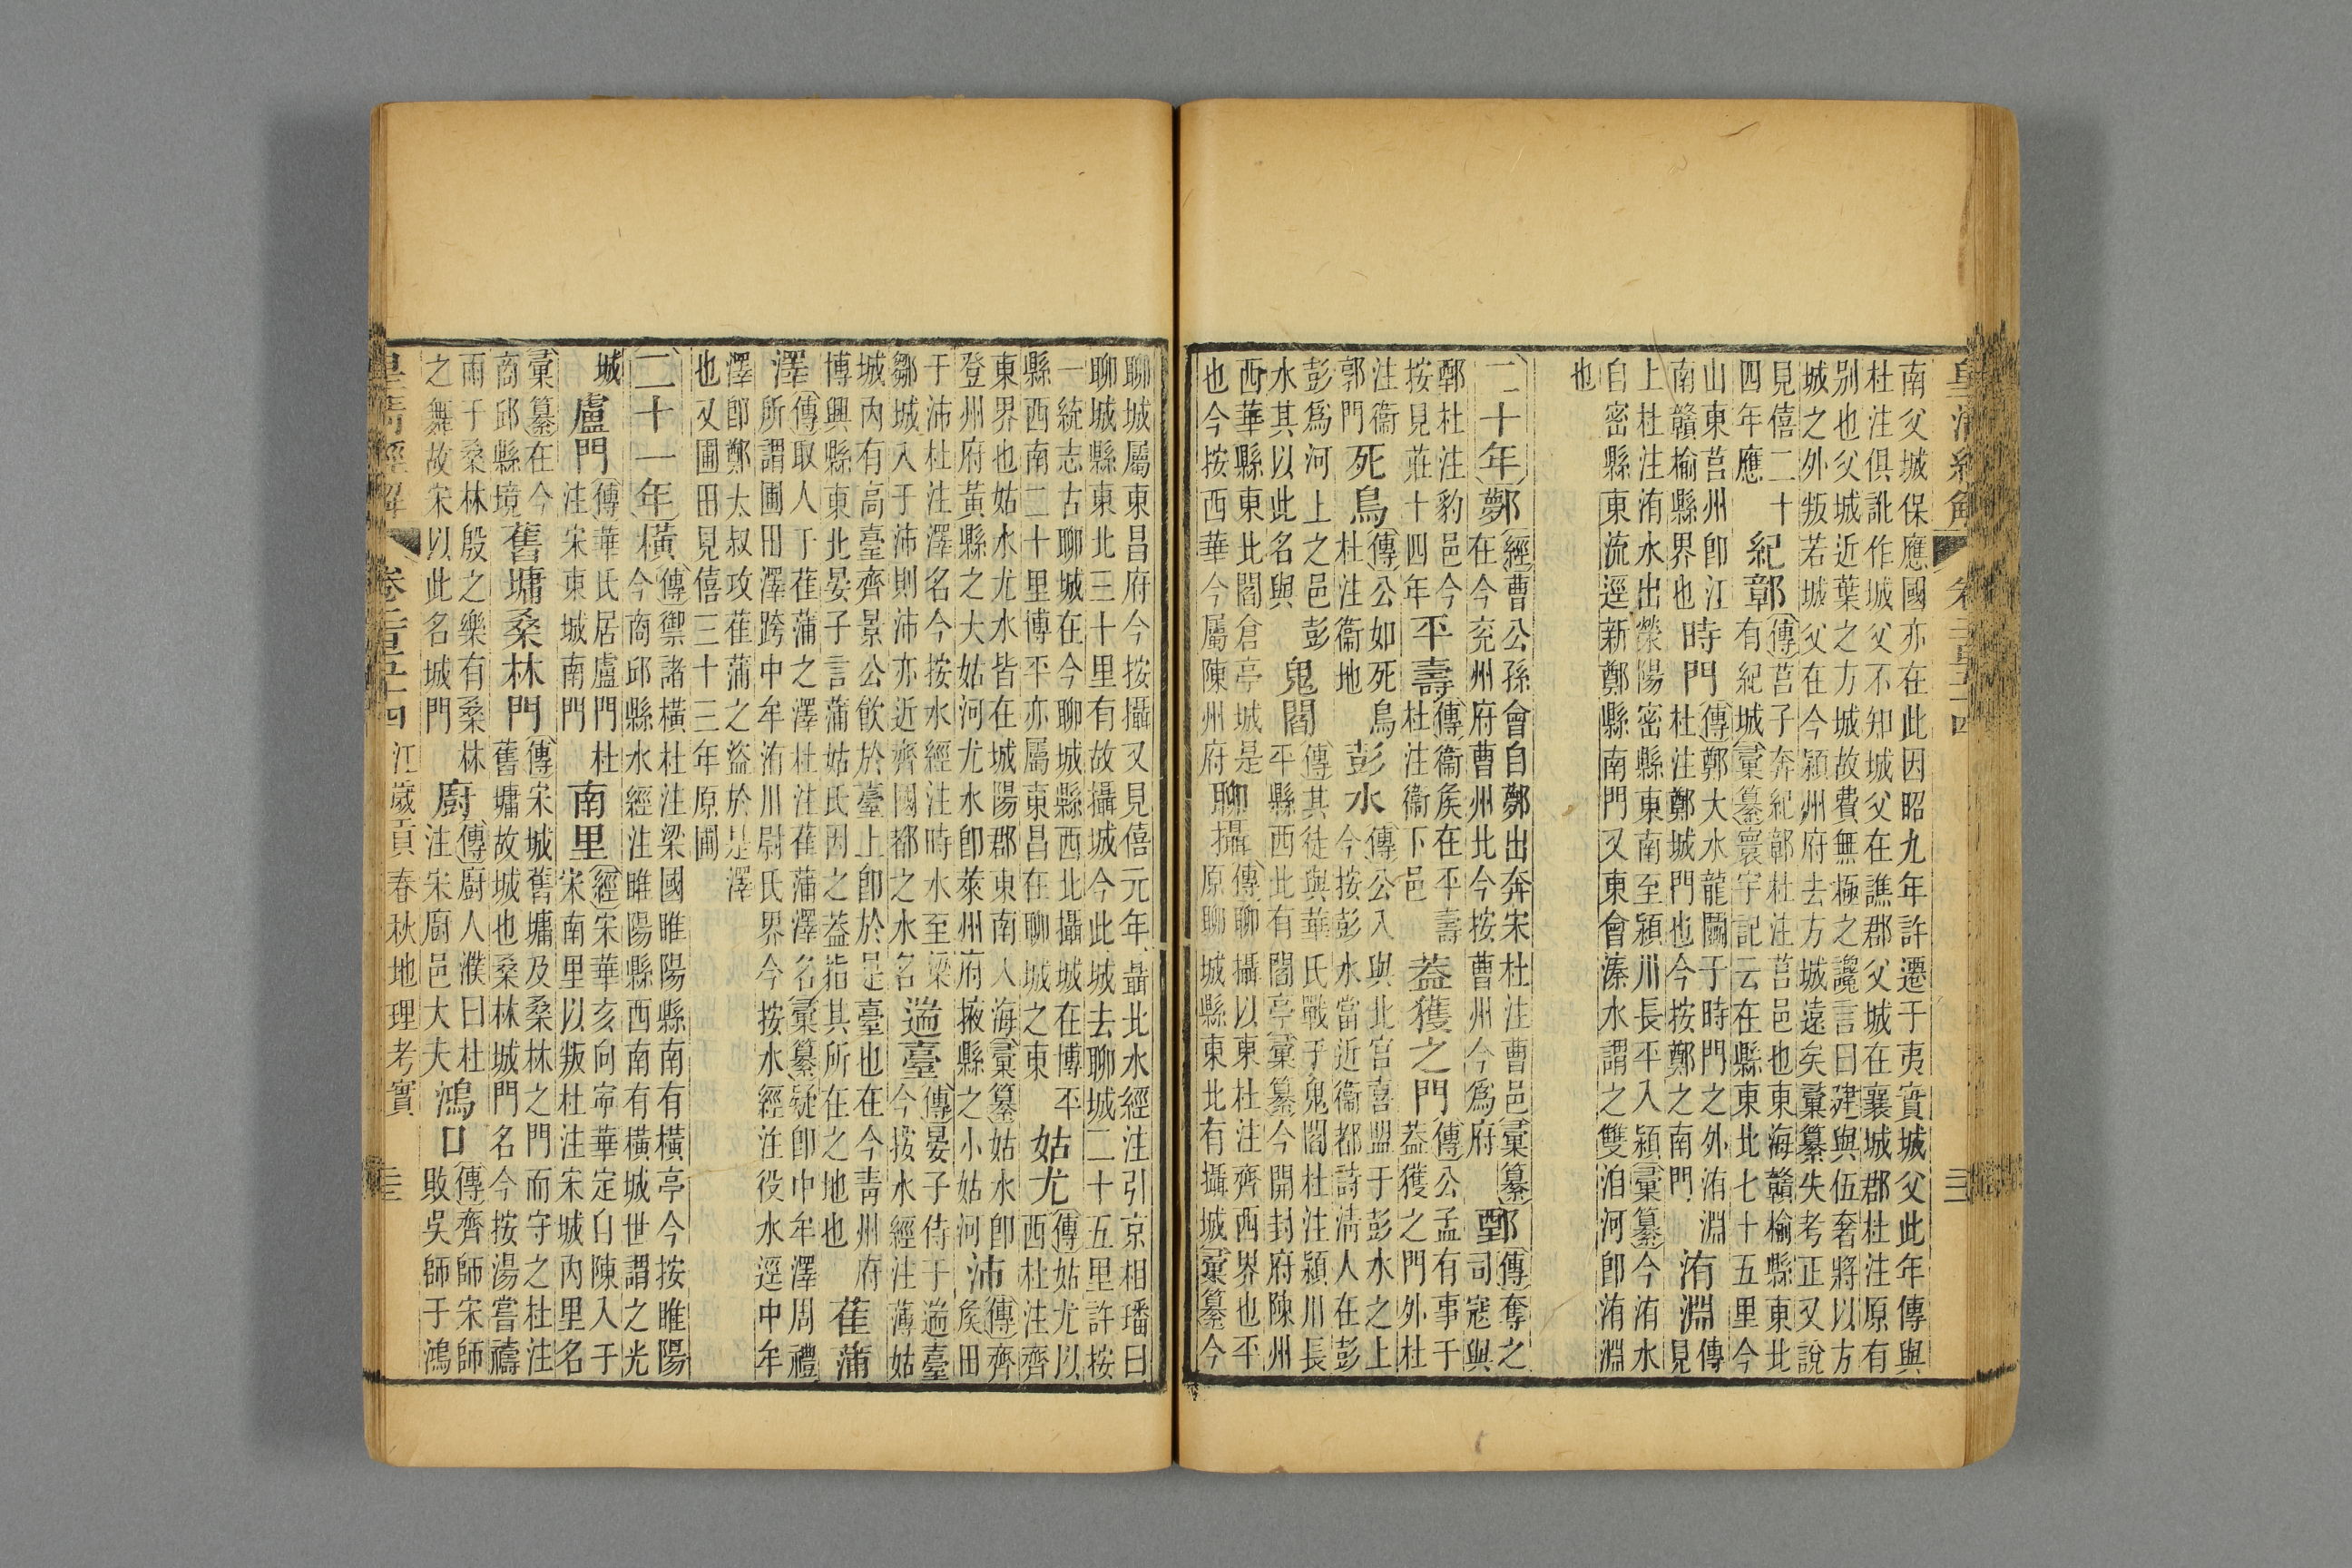 皇清經解 卷二百五十四 三
南父城保應國亦在此因昭九年許遷于夷實城父此年傳與
杜注俱訛作城父不知城父在譙郡父城在襄城郡杜注原有
別也父城近葉之方城故費無極之讒言曰建與伍奢將以方
城之外叛若城父在今潁州府去方城遠矣彙纂失考正又說
見僖二十
四年應
紀鄣
傳莒子奔紀鄣杜注莒邑也東海贛榆縣東北
有紀城彙纂寰宇記云在縣東北七十五里今
山東莒州卽江
南贛榆縣界也
時門
傳鄭大水龍鬭于時門之外洧淵
杜注鄭城門也今按鄭之南門
洧淵
傳
見
上杜注洧水出滎陽密縣東南至潁川長平入潁彙纂今洧水
自密縣東流逕新鄭縣南門又東會溱水謂之雙洎河卽洧淵
也
二十年
鄸
經曹公孫會自鄸出奔宋杜注曹邑彙纂
在今兗州府曹州北今按曹州今爲府
鄄
傳奪之
司寇與
鄄杜注豹邑今
按見莊十四年
平壽
傳衞矦在平壽
杜注衞下邑
蓋獲之門
傳公孟有事于
蓋獲之門外杜
注衞
郭門
死鳥
傳公如死鳥
杜注衞地
彭水
傳公入與北宮喜盟于彭水之上
今按彭水當近衞都詩淸人在彭
彭爲河上之邑彭
水其以此名與
鬼閻
傳其徒與華氏戰于鬼閻杜注潁川長
平縣西北有閻亭彙纂今開封府陳州
西華縣東北閻倉亭城是
也今按西華今屬陳州府
聊攝
傳聊攝以東杜注齊西界也平
原聊城縣東北有攝城彙纂今
聊城屬東昌府今按攝又見僖元年聶北水經注引京相璠曰
聊城縣東北三十里有故攝城今此城去聊城二十五里許按
一統志古聊城在今聊城縣西北攝城在博平
縣西南二十里博平亦屬東昌在聊城之東
姑尤
傳姑尤以
西杜注齊
東界也姑水尤水皆在城陽郡東南入海彙纂姑水卽
登州府黃縣之大姑河尤水卽萊州府掖縣之小姑河
沛
傳齊
矦田
于沛杜注澤名今按水經注時水至梁
鄒城入于沛則沛亦近齊國都之水名
遄臺
傳晏子侍于遄臺
今按水經注薄姑
城內有高臺齊景公飮於臺上卽於是臺也在今靑州府
博興縣東北晏子言蒲姑氏因之蓋指其所在之地也
萑蒲
澤
傳取人于萑蒲之澤杜注萑蒲澤名彙纂疑卽中牟澤周禮
所謂圃田澤跨中牟洧川尉氏界今按水經注役水逕中牟
澤卽鄭太叔攻萑蒲之盜於是澤
也又圃田見僖三十三年原圃
二十一年
橫
傳禦諸橫杜注梁國睢陽縣南有橫亭今按睢陽
今商邱縣水經注睢陽縣西南有橫城世謂之光
城
盧門
傳華氏居盧門杜
注宋東城南門
南里
經宋華亥向寧華定自陳入于
宋南里以叛杜注宋城內里名
彙纂在今
商邱縣境
舊墉桑林門
傳宋城舊墉及桑林之門而守之杜注
舊墉故城也桑林城門名今按湯嘗禱
雨于桑林殷之樂有桑林
之舞故宋以此名城門
廚
傳廚人濮曰杜
注宋廚邑大夫
鴻口
傳齊師宋師
敗吳師于鴻
皇清經解 卷二百五十四 江歲貢春秋地理考實